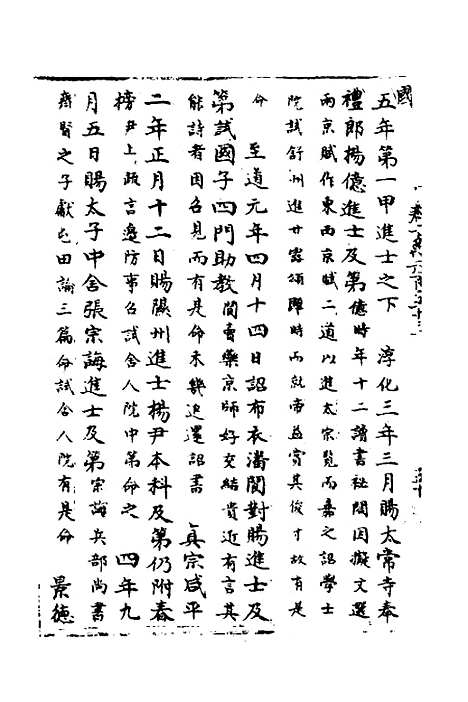 國
五年第一甲進士之下　淳化三年三月賜太常寺奉
禮郎楊億進士及第億時年十二讀書祕閣因擬文選
兩京賦作東西京賦二道以進太宗覽而嘉之詔學士
院試舒州進甘露頌賦時而就帝益賞其俊才故有是
命　至道元年四月十四日詔布衣潘閬對賜進士及
第試國子四門助教閬賣藥京師好交結貴近有言其
能詩者因召見而有是命未幾追還詔書　真宗咸平
二年正月十二日賜隰州進士楊尹本科及第仍附春
榜尹上疏言邊防事召試舍人院中第命之　四年九
月五日賜太子中舍張宗誨進士及第宗誨兵部尚書
齊賢之子獻屯田論三篇命試舍人院有是命　景德